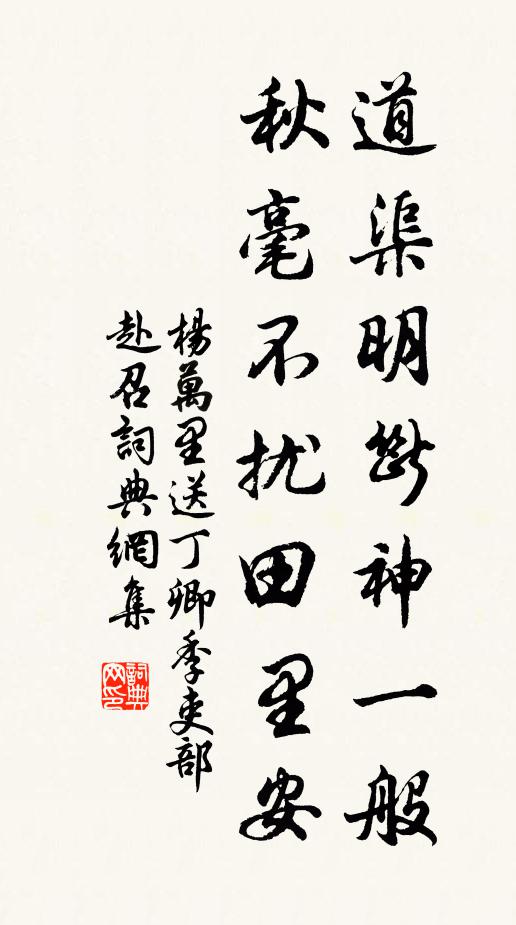 道渠明断神一般
秋毫不扰田里安
楊萬里送丁卿季吏部
赴召詞典網集
詞典
网印